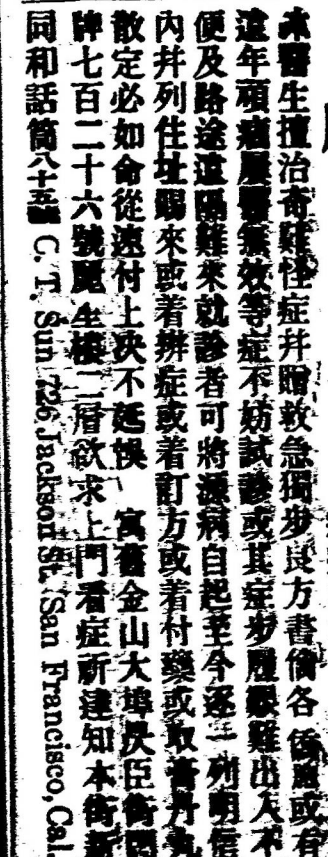 本醫生擅治奇難怪症幷贈救急獨步良方書倘各僑胞或有
遠年頑痼屢醫無效等症不妨試診或其症步履艱難出入不
便及路途遠隔難來就診者可將源病自起至今逐一列明信
內幷列住址賜來或着辨症或着訂方或着付藥或取膏丹丸
散定必如命從速付上决不延悞 寓舊金山大埠昃臣街門
牌七百二十六號 樓二層欲求上門看症祈達知本街新
同和話筒八十五 C. T. Sun 726 Jackson St. San Francisco, Cal.